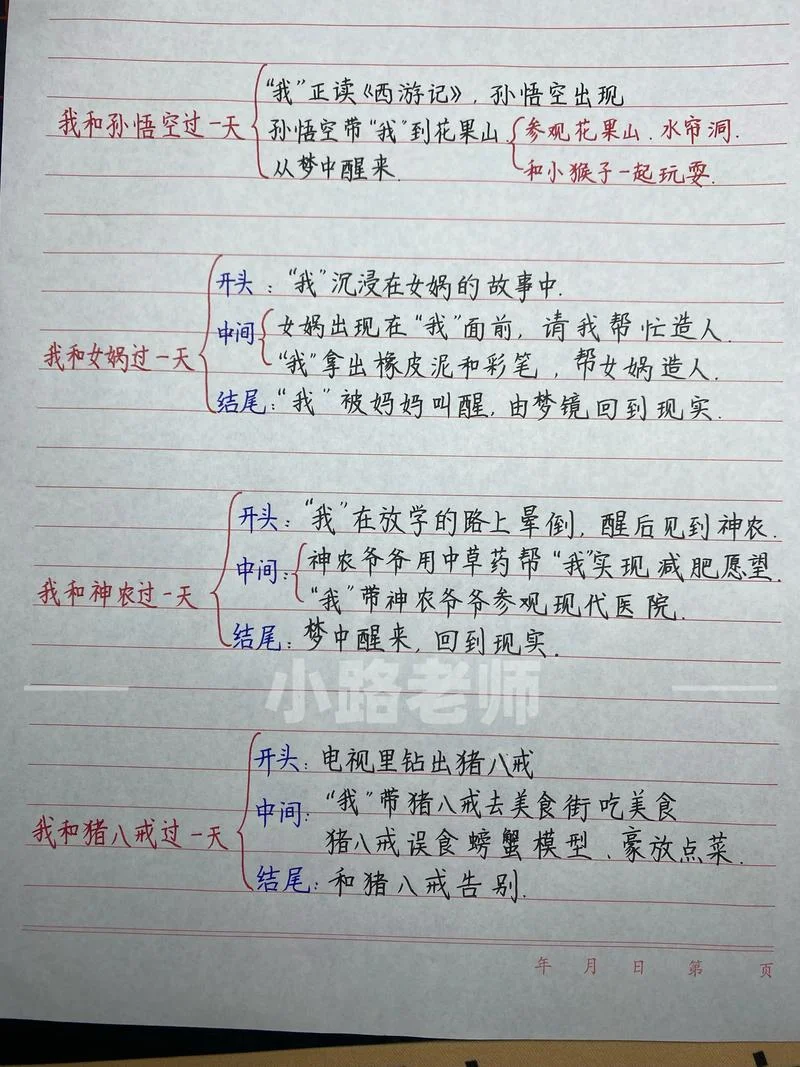 “我”正读《西游记》，孙悟空出现
我和孙悟空过一天
孙悟空带“我”到花果山
参观花果山、水帘洞.
和小猴子一起玩耍.
从梦中醒来.
开头：“我”沉浸在女娲的故事中.
我和女娲过一天
中间
女娲出现在“我”面前，请我帮忙造人.
“我”拿出橡皮泥和彩笔，帮女娲造人.
结尾：“我”被妈妈叫醒，由梦镜回到现实.
开头：“我”在放学的路上晕倒，醒后见到神农.
我和神农过一天
中间：
神农爷爷用中草药帮“我”实现减肥愿望.
“我”带神农爷爷参观现代医院.
结尾：梦中醒来，回到现实.
小路老师
开头：电视里钻出猪八戒
我和猪八戒过一天
中间：“我”带猪八戒去美食街吃美食
猪八戒误食螃蟹模型、豪放点菜.
结尾：和猪八戒告别.
年 月 日 第 页